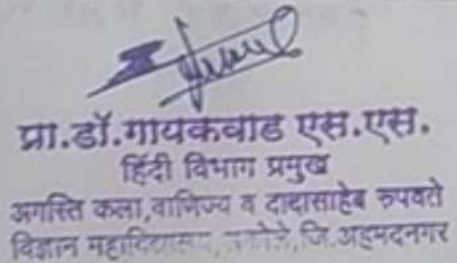 प्रा.डॉ.गायकवाड एस.एस.
हिंदी विभाग प्रमुख
अगस्ति कला,वाणिज्य व दादासाहेब रुपवते
विज्ञान महाविद्यालय, अकोले,जि.अहमदनगर